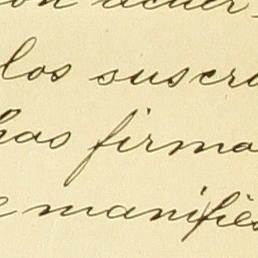 los suscri
has firma
e manifies